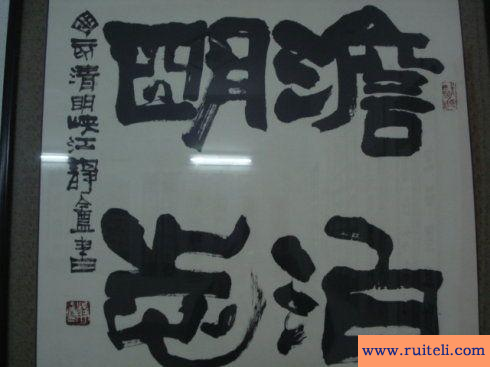 澹泊
明志
清明峡江靜盦書
www.ruiteli.com